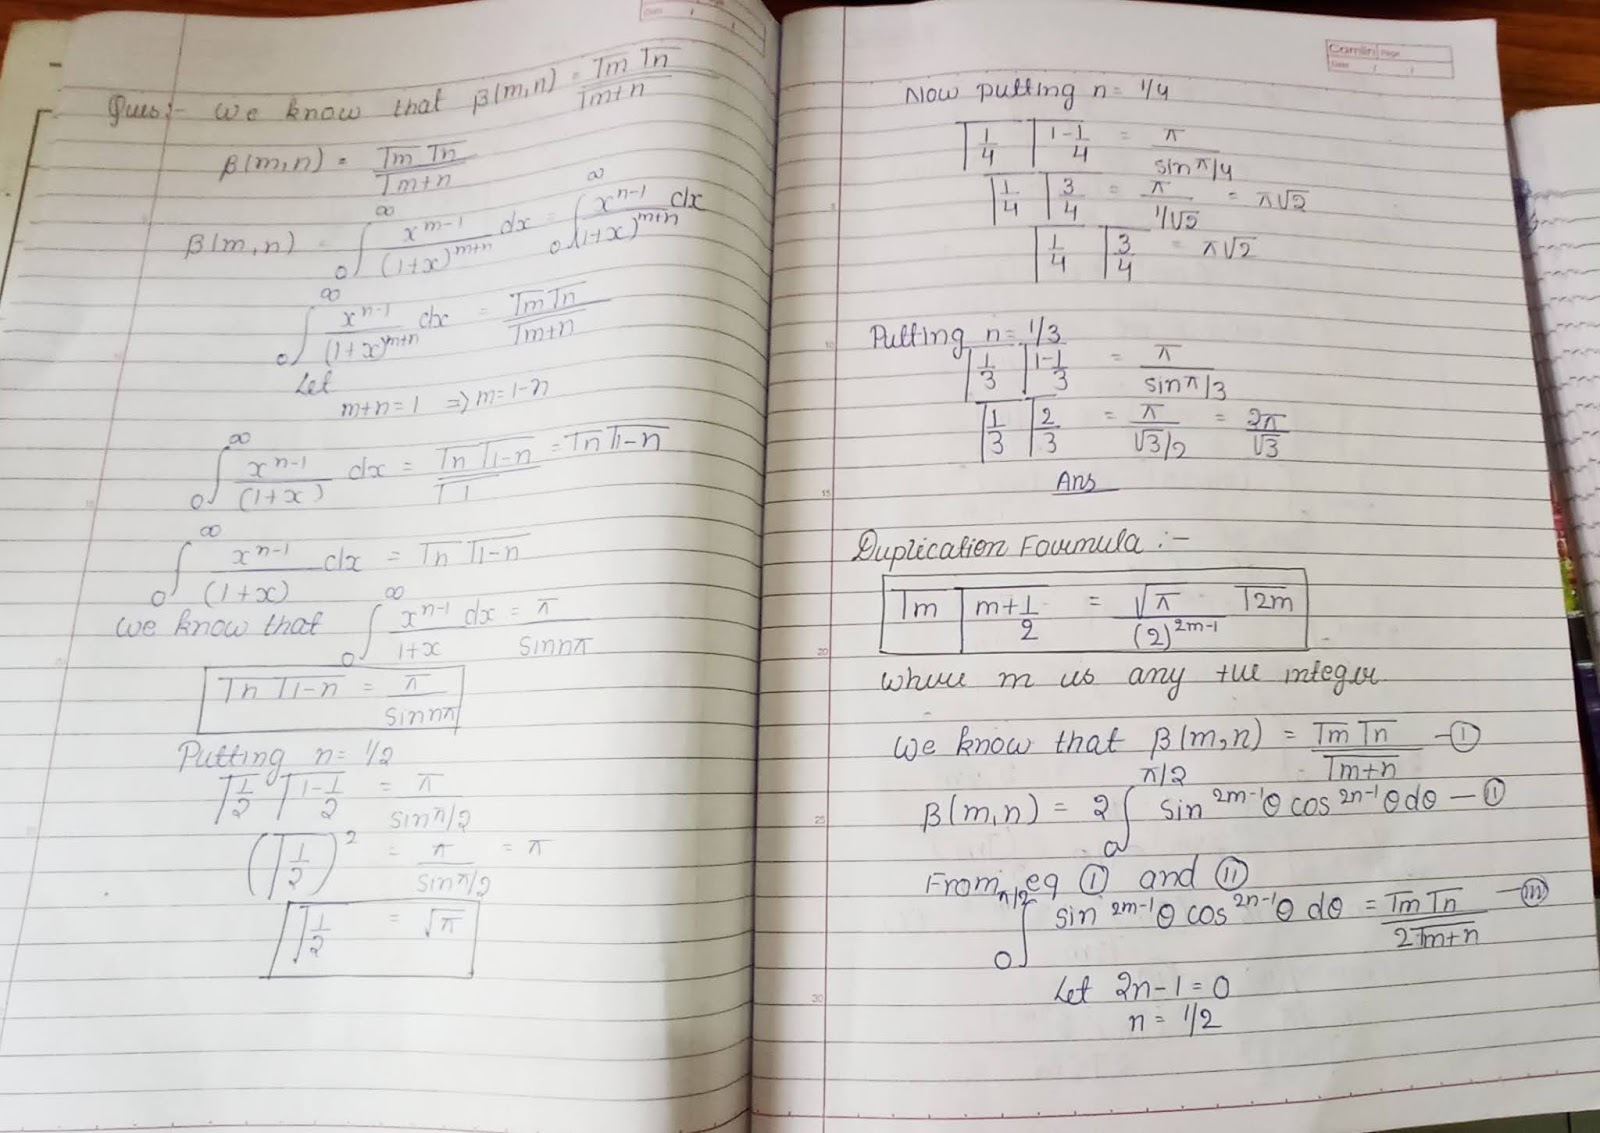 Ques:- We know that β(m,n) = Γm Γn / Γm+n
β(m,n) = Γm Γn / Γm+n
β(m,n) = ∫₀^∞ x^(m-1) / (1+x)^(m+n) dx = ∫₀^∞ x^(n-1) / (1+x)^(m+n) dx
∫₀^∞ x^(n-1) / (1+x)^(m+n) dx = Γm Γn / Γm+n
Let
m+n=1 => m=1-n
∫₀^∞ x^(n-1) / (1+x) dx = Γn Γ1-n / Γ1 = Γn Γ1-n
∫₀^∞ x^(n-1) / (1+x) dx = Γn Γ1-n
We know that ∫₀^∞ x^(n-1) / 1+x dx = π / sin nπ
Γn Γ1-n = π / sin nπ
Putting n= 1/2
Γ1/2 Γ1-1/2 = π / sin π/2
(Γ1/2)² = π / sin π/2 = π
Γ1/2 = √π
Camlin Page
Date / /
Now putting n= 1/4
Γ1/4 Γ1-1/4 = π / sin π/4
Γ1/4 Γ3/4 = π / 1/√2 = π√2
Γ1/4 Γ3/4 = π√2
Putting n= 1/3
Γ1/3 Γ1-1/3 = π / sin π/3
Γ1/3 Γ2/3 = π / √3/2 = 2π / √3
Ans
Duplication Formula :-
Γm Γm+1/2 = √π / (2)^(2m-1) Γ2m
where m is any +ve integer
We know that β(m,n) = Γm Γn / Γm+n — Ⓘ
β(m,n) = 2 ∫₀^(π/2) sin^(2m-1)θ cos^(2n-1)θ dθ — Ⓘ
From eq Ⓘ and Ⓘⓘ
∫₀^(π/2) sin^(2m-1)θ cos^(2n-1)θ dθ = Γm Γn / 2Γm+n — (III)
Let 2n-1=0
n= 1/2